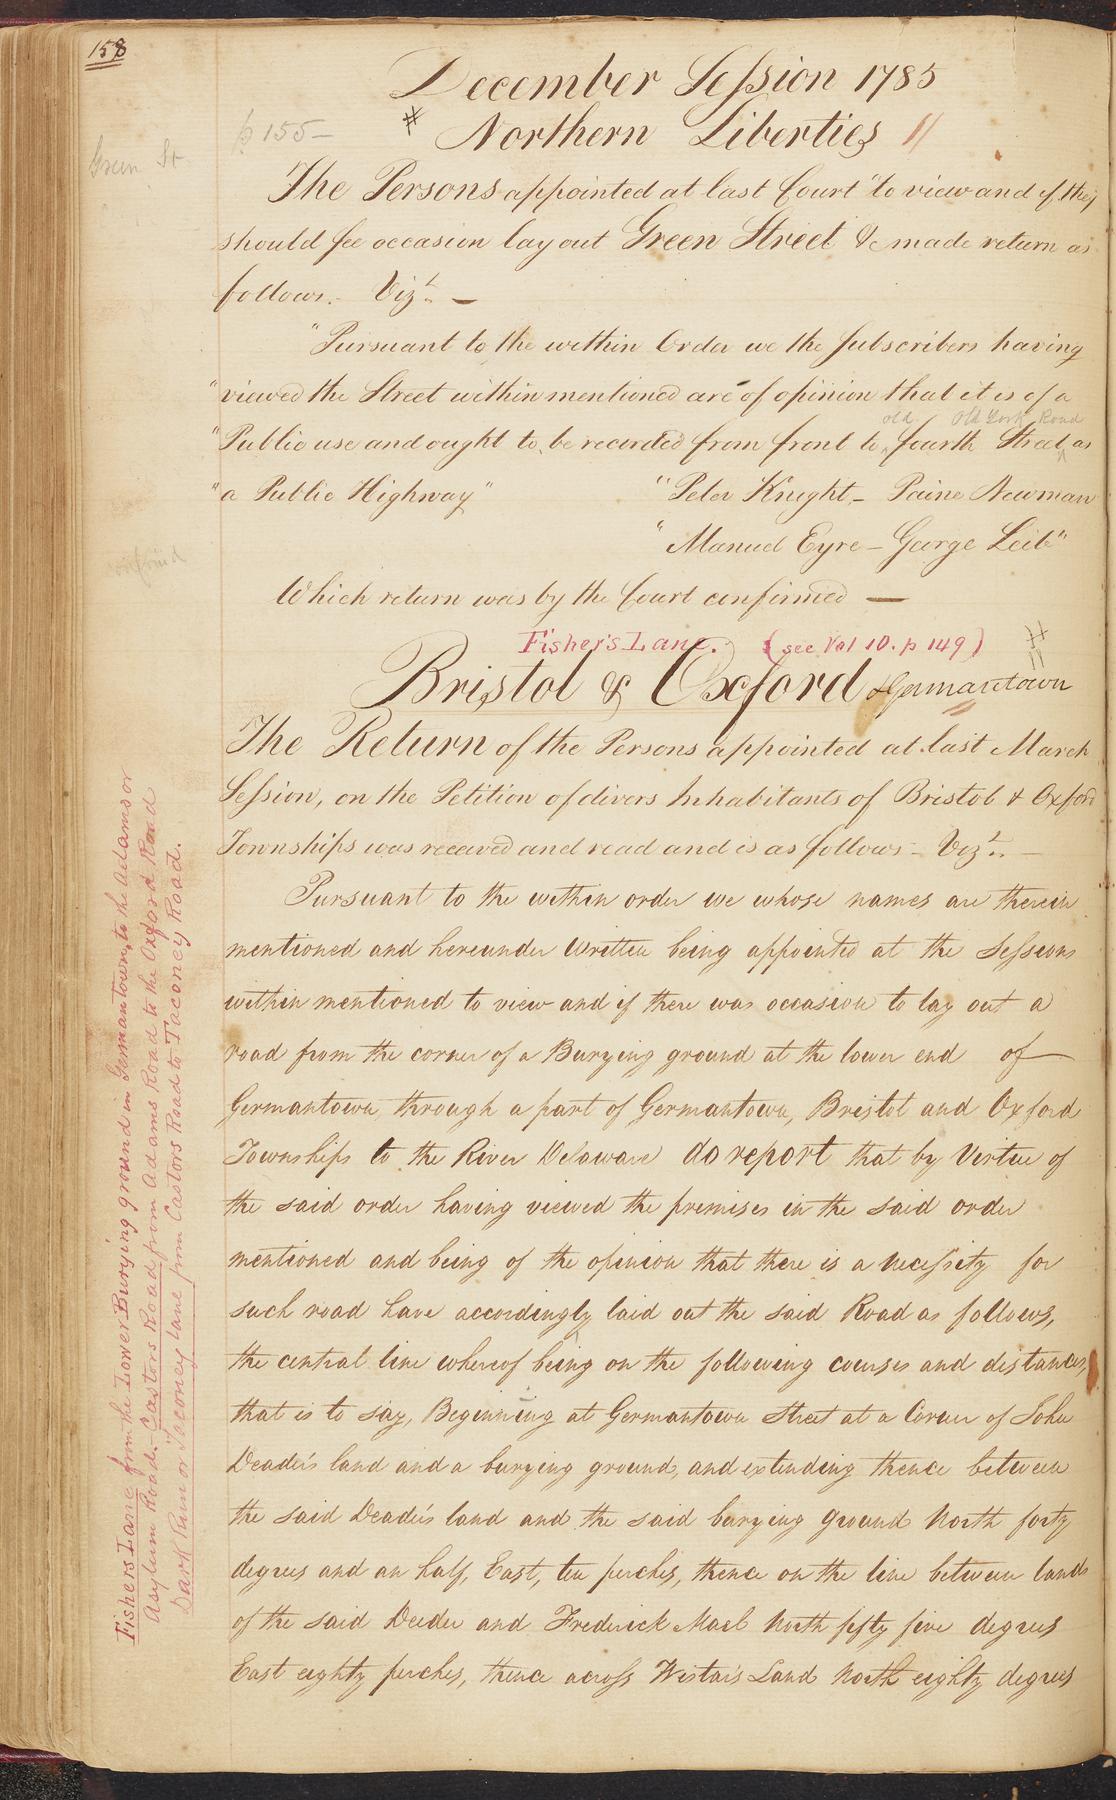 158
December Session 1785
# Northern Liberties //
p 155 —
Green St
The Persons appointed at last Court to view and if they
should see occasion lay out Green Street &c made return as
follows. Vizt. —
"Pursuant to the within Order we the Subscribers having
"viewed the Street within mentioned are of opinion that it is of a
old Old York Road
"Public use and ought to be recorded from front to fourth Street as
"a Public Highway" "Peter Knight — Paine Newman
"Manuel Eyre — George Leib"
confirm'd
Which return was by the Court confirmed —
Fisher's Lane. (see Vol 10. p 149)
Bristol & Oxford & Germantown
The Return of the Persons appointed at last March
Session, on the Petition of divers Inhabitants of Bristol & Oxford
Townships was received and read and is as follows — Vizt. —
Pursuant to the within order we whose names are therein
mentioned and hereunder written being appointed at the Sessions
within mentioned to view and if there was occasion to lay out a
road from the corner of a Burying ground at the lower end of
Germantown through a part of Germantown, Bristol and Oxford
Townships to the River Delaware do report that by Virtue of
the said order having viewed the premises in the said order
mentioned and being of the opinion that there is a necessity for
such road have accordingly laid out the said Road as follows,
the central line whereof being on the following courses and distances,
that is to say, Beginning at Germantown Street at a Corner of John
Deader's land and a burying ground, and extending thence between
the said Deader's land and the said burying ground North forty
degrees and an half, East, ten perches, thence on the line between lands
of the said Deeder and Frederick Mael North fifty five degrees
East eighty perches, thence across Wistar's Land North eighty degrees
Fishers Lane from the Lower Burying ground in Germantown, to the Adams or
Asylum Road. Castors Road from Adams Road to the Oxford Road
Dark Run or Tacony Lane from Castors Road to Tacony Road.